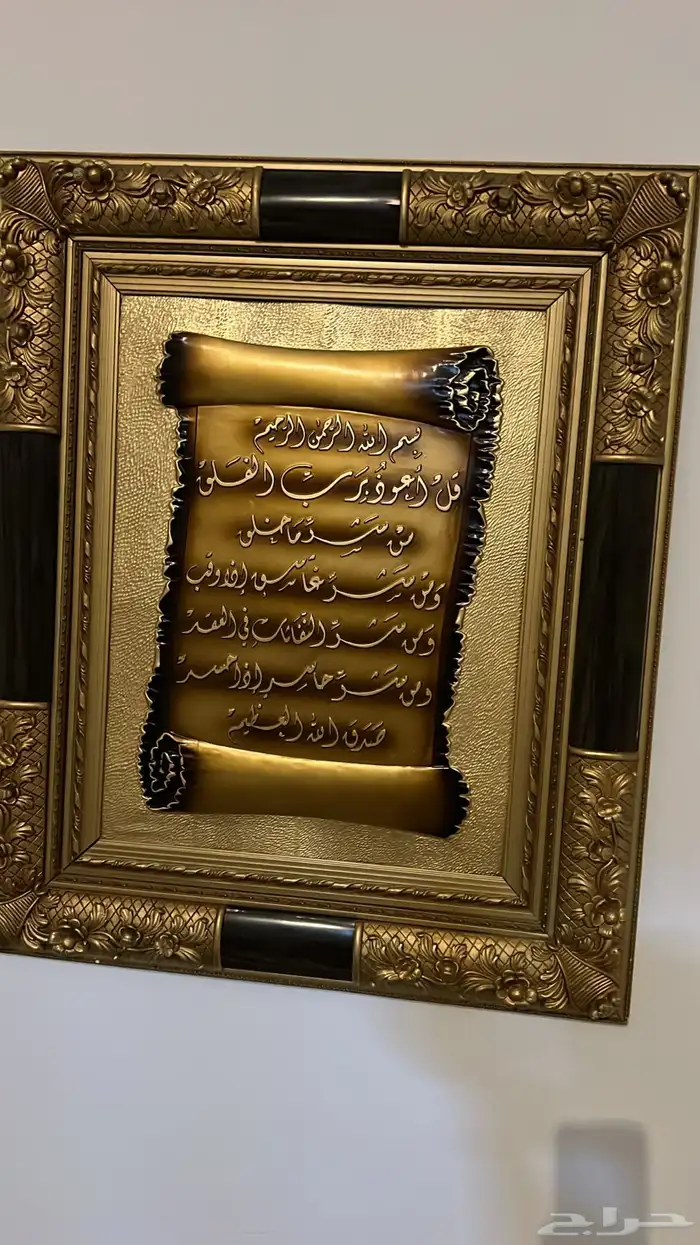 بسم الله الرحمن الرحيم
قل أعوذ برب الفلق
من شر ما خلق
ومن شر غاسق إذا وقب
ومن شر النفاثات في العقد
ومن شر حاسد إذا حسد
صدق الله العظيم
حراج